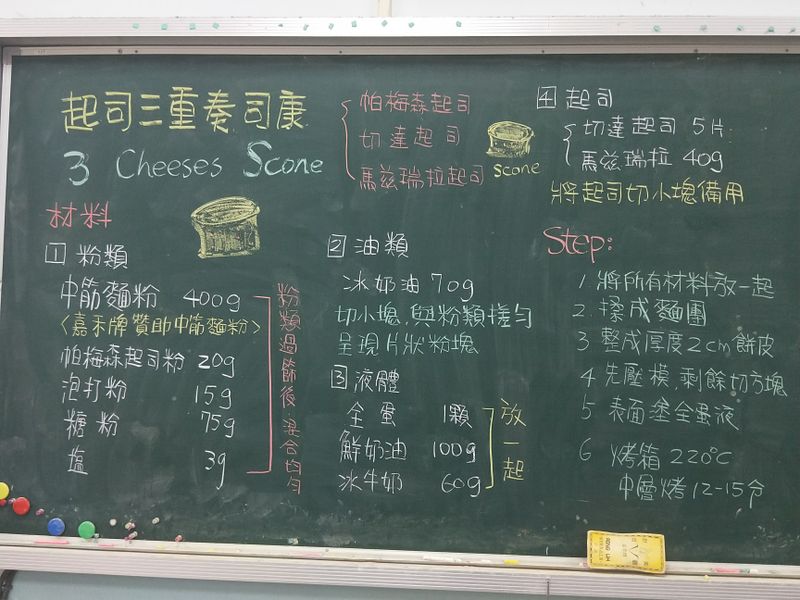 起司三重奏司康
3 Cheeses Scone
帕梅森起司
切達起司
馬茲瑞拉起司
scone
材料
1 粉類
中筋麵粉 400g
<嘉禾牌贊助中筋麵粉>
帕梅森起司粉 20g
泡打粉 15g
糖粉 75g
塩 3g
粉類過篩後.混合均勻
2 油類
冰奶油 70g
切小塊,與粉類搓勻
呈現片狀粉塊
3 液體
全蛋 1顆
鮮奶油 100g
冰牛奶 60g
放一起
4 起司
切達起司 5片
馬茲瑞拉 40g
將起司切小塊備用
Step:
1. 將所有材料放一起
2. 揉成麵團
3 整成厚度2cm餅皮
4 先壓模,剩餘切方塊
5 表面塗全蛋液
6 烤箱 220°C
中層烤12-15分